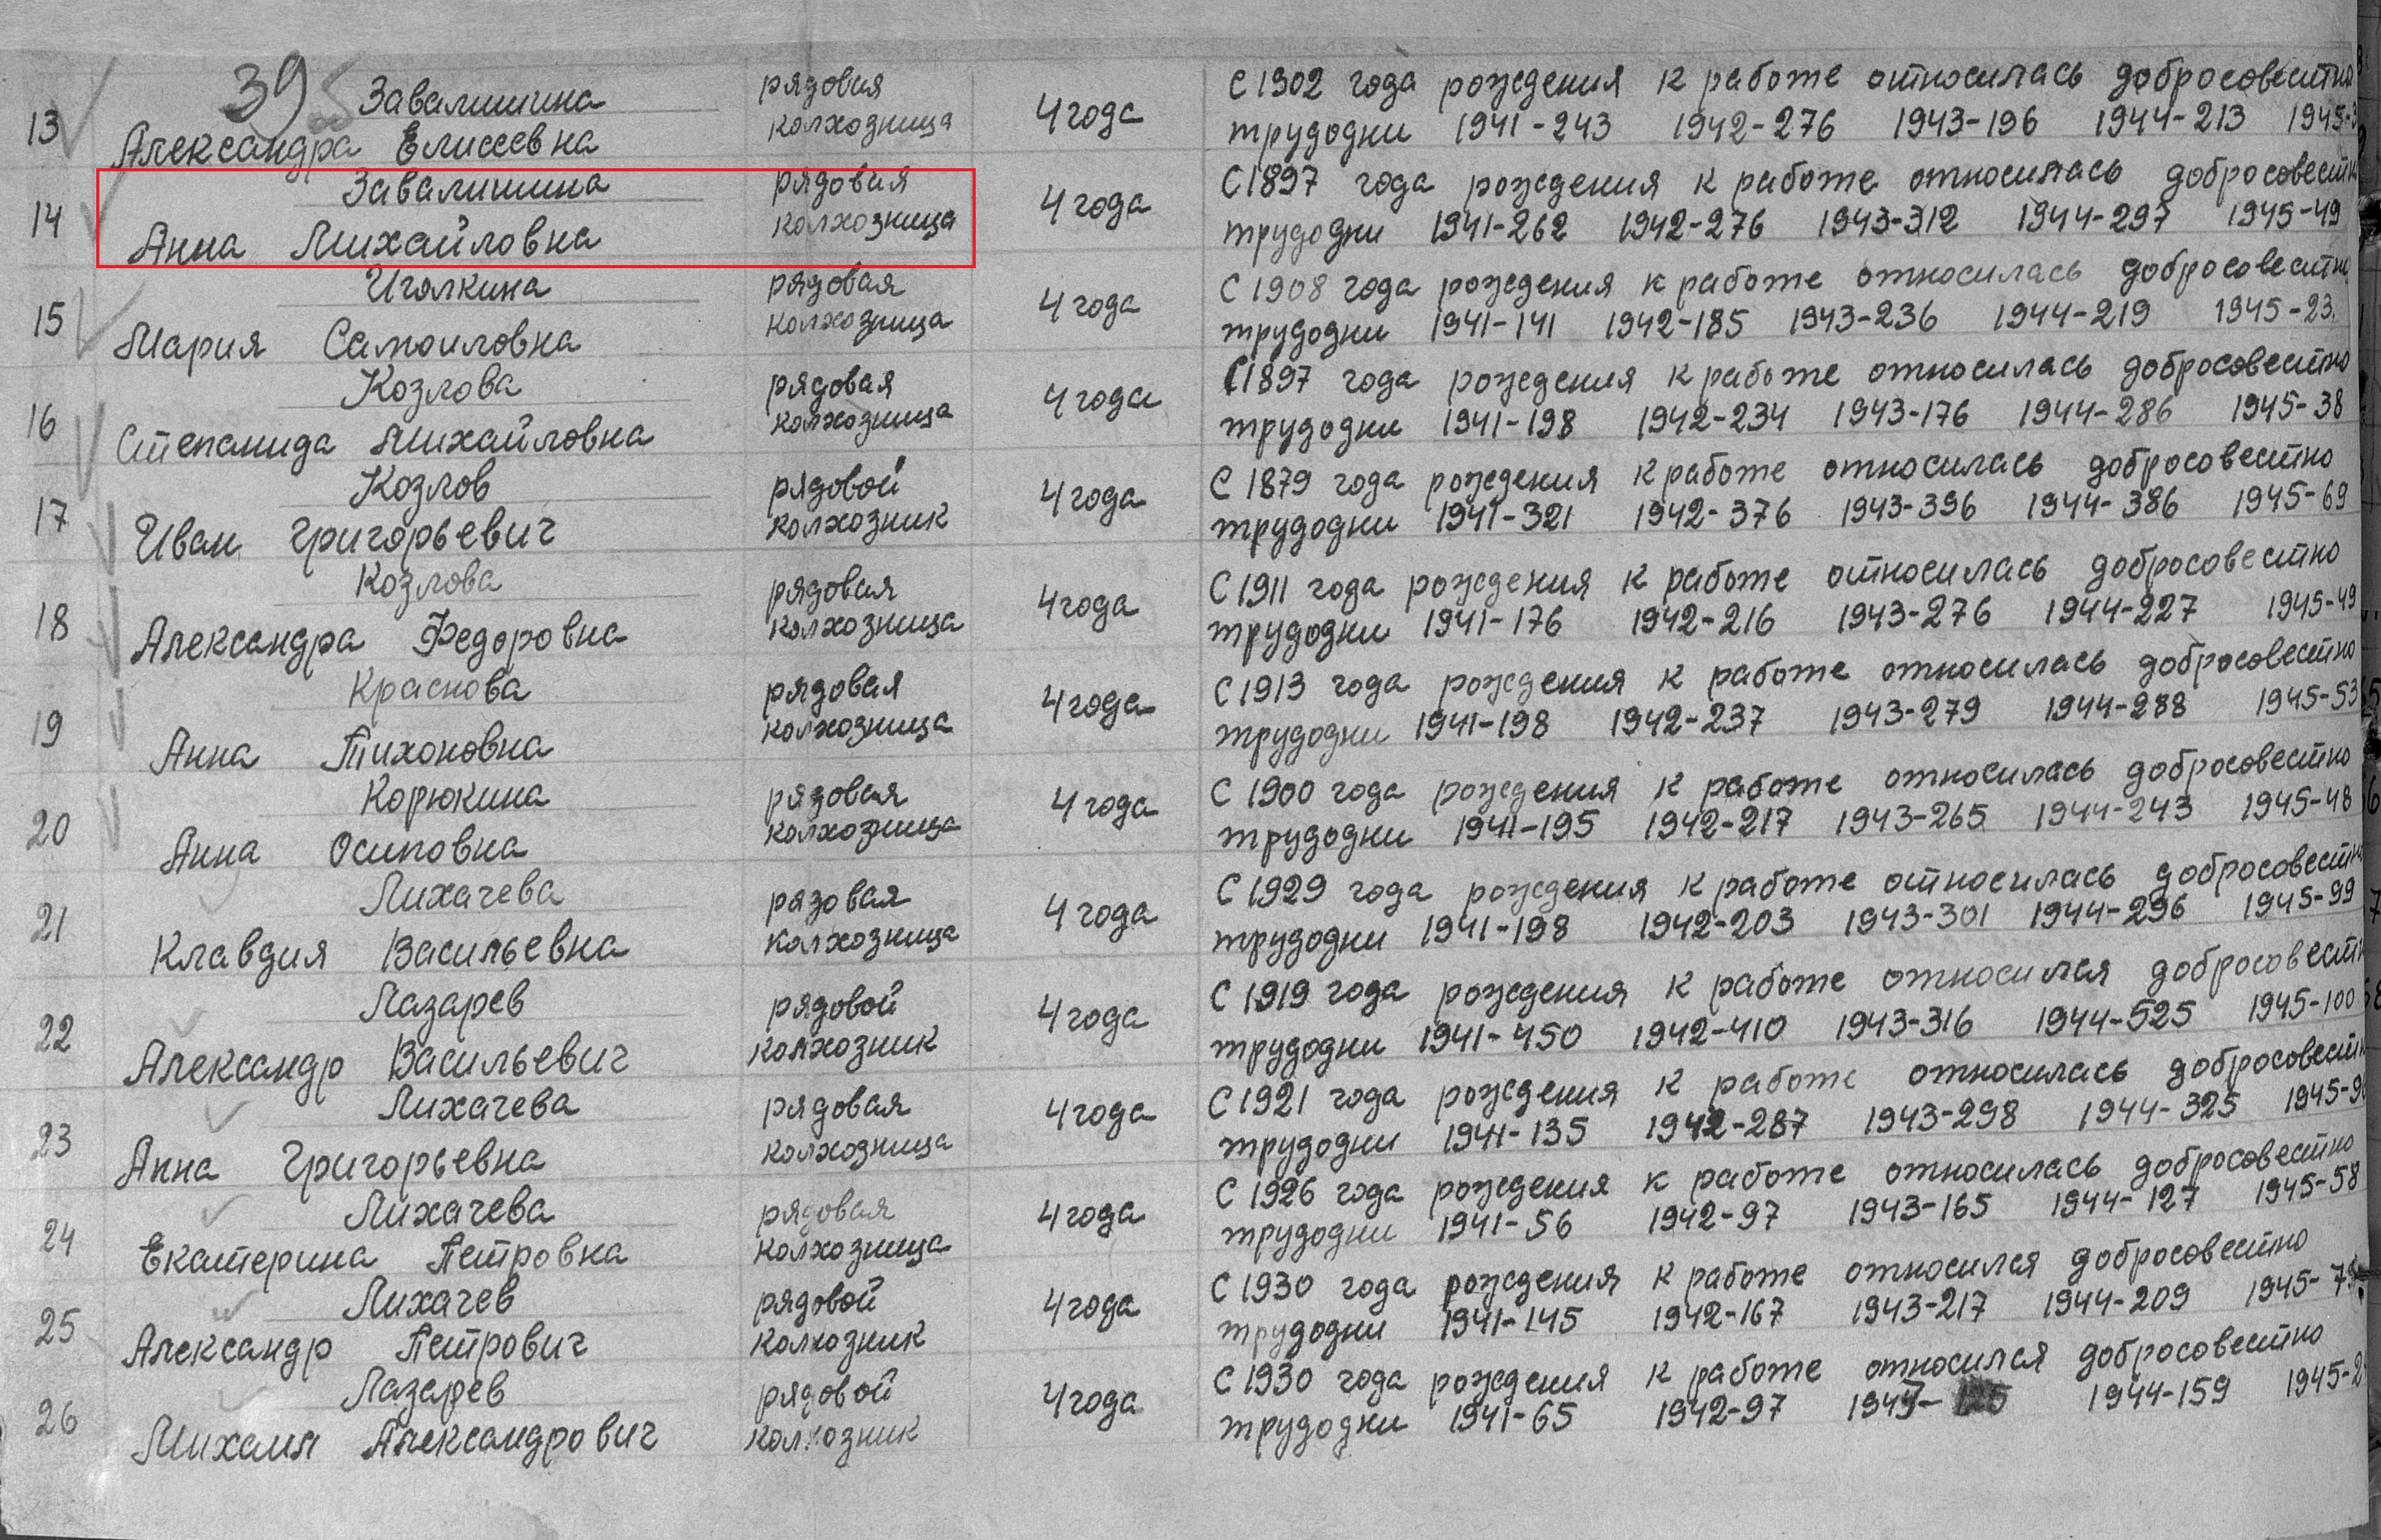 39
13 Завалишина рядовая 4 года С 1902 года рождения к работе относилась добросовестно
Александра Елисеевна колхозница трудодни 1941-243 1942-276 1943-196 1944-213 1945-3
14 Завалишина рядовая 4 года С 1897 года рождения к работе относилась добросовестн
Анна Михайловна колхозница трудодни 1941-262 1942-276 1943-312 1944-297 1945-49
15 Игялкина рядовая 4 года С 1908 года рождения к работе относилась добросовестно
Мария Самоиловна колхозница трудодни 1941-141 1942-185 1943-236 1944-219 1945-23
16 Козлова рядовая 4 года С 1897 года рождения к работе относилась добросовестно
Степанида Михайловна колхозница трудодни 1941-198 1942-234 1943-176 1944-286 1945-38
17 Козлов рядовой 4 года С 1879 года рождения к работе относилась добросовестно
Иван Григорьевич колхозник трудодни 1941-321 1942-376 1943-396 1944-386 1945-69
18 Козлова рядовая 4 года С 1911 года рождения к работе относилась добросовестно
Александра Федоровна колхозница трудодни 1941-176 1942-216 1943-276 1944-227 1945-49
19 Краснова рядовая 4 года С 1913 года рождения к работе относилась добросовестно
Анна Тихоновна колхозница трудодни 1941-198 1942-237 1943-279 1944-288 1945-53
20 Корюкина рядовая 4 года С 1900 года рождения к работе относилась добросовестно
Анна Осиповна колхозница трудодни 1941-195 1942-217 1943-265 1944-243 1945-48
21 Лихачева рядовая 4 года С 1929 года рождения к работе относилась добросовестн
Клавдия Васильевна колхозница трудодни 1941-198 1942-203 1943-301 1944-296 1945-99
22 Лазарев рядовой 4 года С 1919 года рождения к работе относился добросовестн
Александр Васильевич колхозник трудодни 1941-450 1942-410 1943-316 1944-525 1945-100
23 Лихачева рядовая 4 года С 1921 года рождения к работе относилась добросовестн
Анна Григорьевна колхозница трудодни 1941-135 1942-287 1943-298 1944-325 1945-9
24 Лихачева рядовая 4 года С 1926 года рождения к работе относилась добросовестно
Екатерина Петровна колхозница трудодни 1941-56 1942-97 1943-165 1944-127 1945-58
25 Лихачев рядовой 4 года С 1930 года рождения к работе относился добросовестно
Александр Петрович колхозник трудодни 1941-145 1942-167 1943-217 1944-209 1945-7
26 Лазарев рядовой 4 года С 1930 года рождения к работе относился добросовестно
Михаил Александрович колхозник трудодни 1941-65 1942-97 1943- 1944-159 1945-2